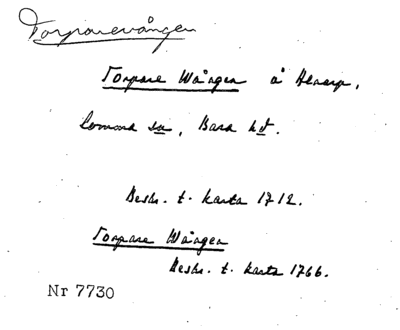 Torparevången
Torpare Wången å Alnarp,
Lomma sn, Bara hd.
Beskr. t. karta 1712.
Torpare Wången
Beskr. t. karta 1766.
Nr 7730